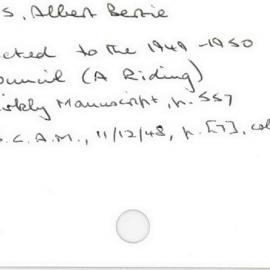 S, Albert Bertie
cted to the 1949-1950
ouncil (A Riding)
irkly Manuscript, p. 557
.C.A.M., 11/12/48, p. [7], col